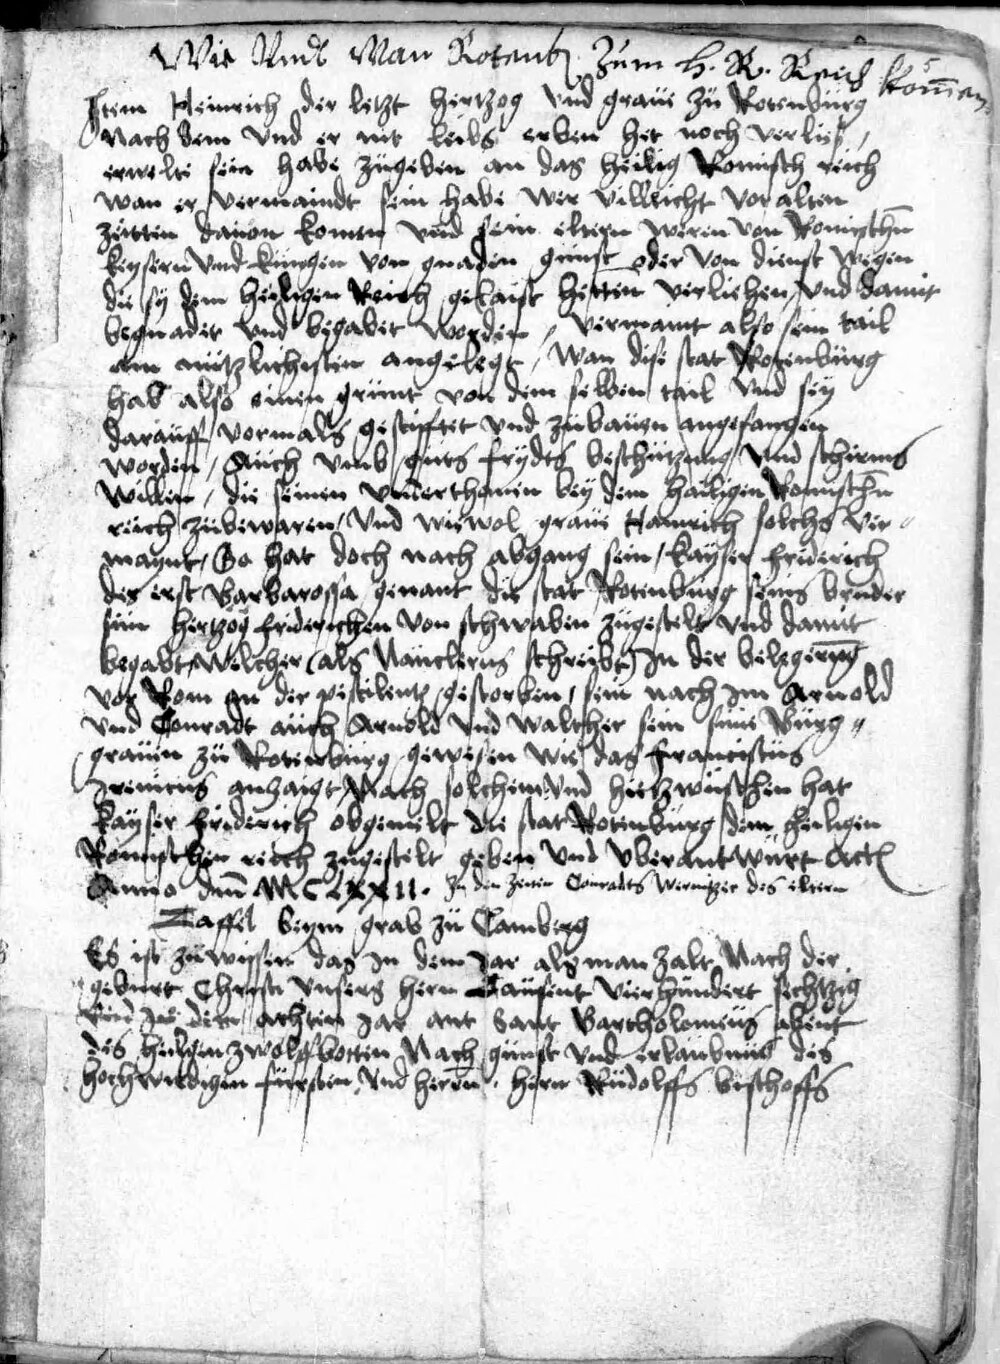 Wie Undt Wan Rotenb. Zum H. R. Reich komen.
Item Heinrich der letzt hertzog vnd graue zu Rotenburg
Nach dem vnd er nit leibs erben het noch verlies,
erwelte sein habe zugeben an das heilig Romisch reich
wan er vermaindt sein habe wer villeicht vor alten
zeitten dauon komen vnd sein eltern weren von Romischn
keysern vnd kunigen von gnaden gunst oder von dienst wegen
die sy dem heiligen Reich gethaist hetten verliehen vnd damit
begnadet vnd begabet worden, vermaint also sein tail
am nutzlichisten angelegt, Wan dise stat Rotenburg
hab also einen grunt von dem selben tail vnd sey
darauff vormals gestifftet vnd zubauen angefangen
worden, Auch vmb guts frydts beschutzung vnd schirms
willen, die seinen vnderthanen bey dem hailigen Romischn
reich zubewaren, Vnd wiewol graue Hainrich solchs ver
maynt, So hat doch nach abgang sein, kayser friderich
der erst Barbarossa genant die stat Rotenburg seins bruder
sun hertzog friderichen von schwaben zugestelt vnd damit
begabt, Welcher (als Nauclerus schreibt) In der belegerung
vor Rom an der pestilentz gestorben, sein nach im Arnold
vnd Conradt auch Arnold vnd Walther sein sune Burg=
grauen zu Rotenburg gewesen wie das Franciscus
Irenicus anzaigt, Nach solchem vnd hiezwuschen hat
kayser friderich obgemelt die stat Rotenburg dem heiligen
Romischen reich zugestelt geben vnd vberantwurt Actu
Anno dm̄ MCLXXII. In den Zeiten Conradts Wernitzer des eltern
Taffel beym grab zu Camberg
Es ist zuwissen das In dem Jar als man zalt Nach der
geburt Christi vnsers hern Tausent vierhundert sechtzig
vnd In dem achten Jar ant Sant Bartholomeus abent
des heiligen zwolffbotten Nach gunst vnd erlaubnus des
hochwirdigen fursten vnd herrn, hern Rudolffs bischoffs